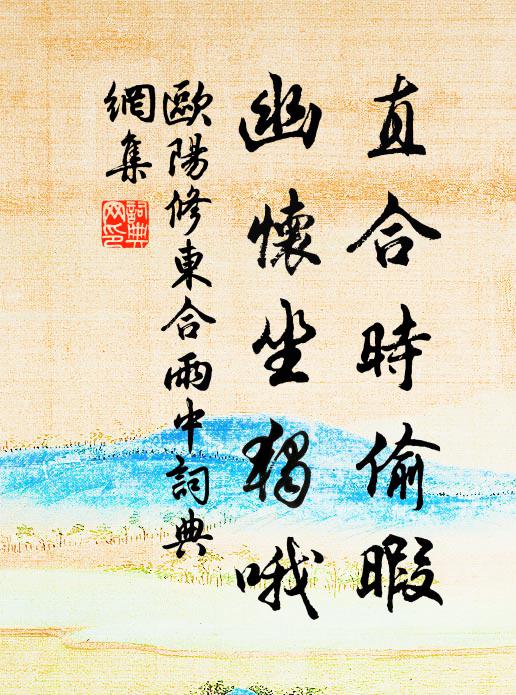 直合時偷暇
幽懷坐獨哦
歐陽修東合雨中詞典
網集
詞典
网印